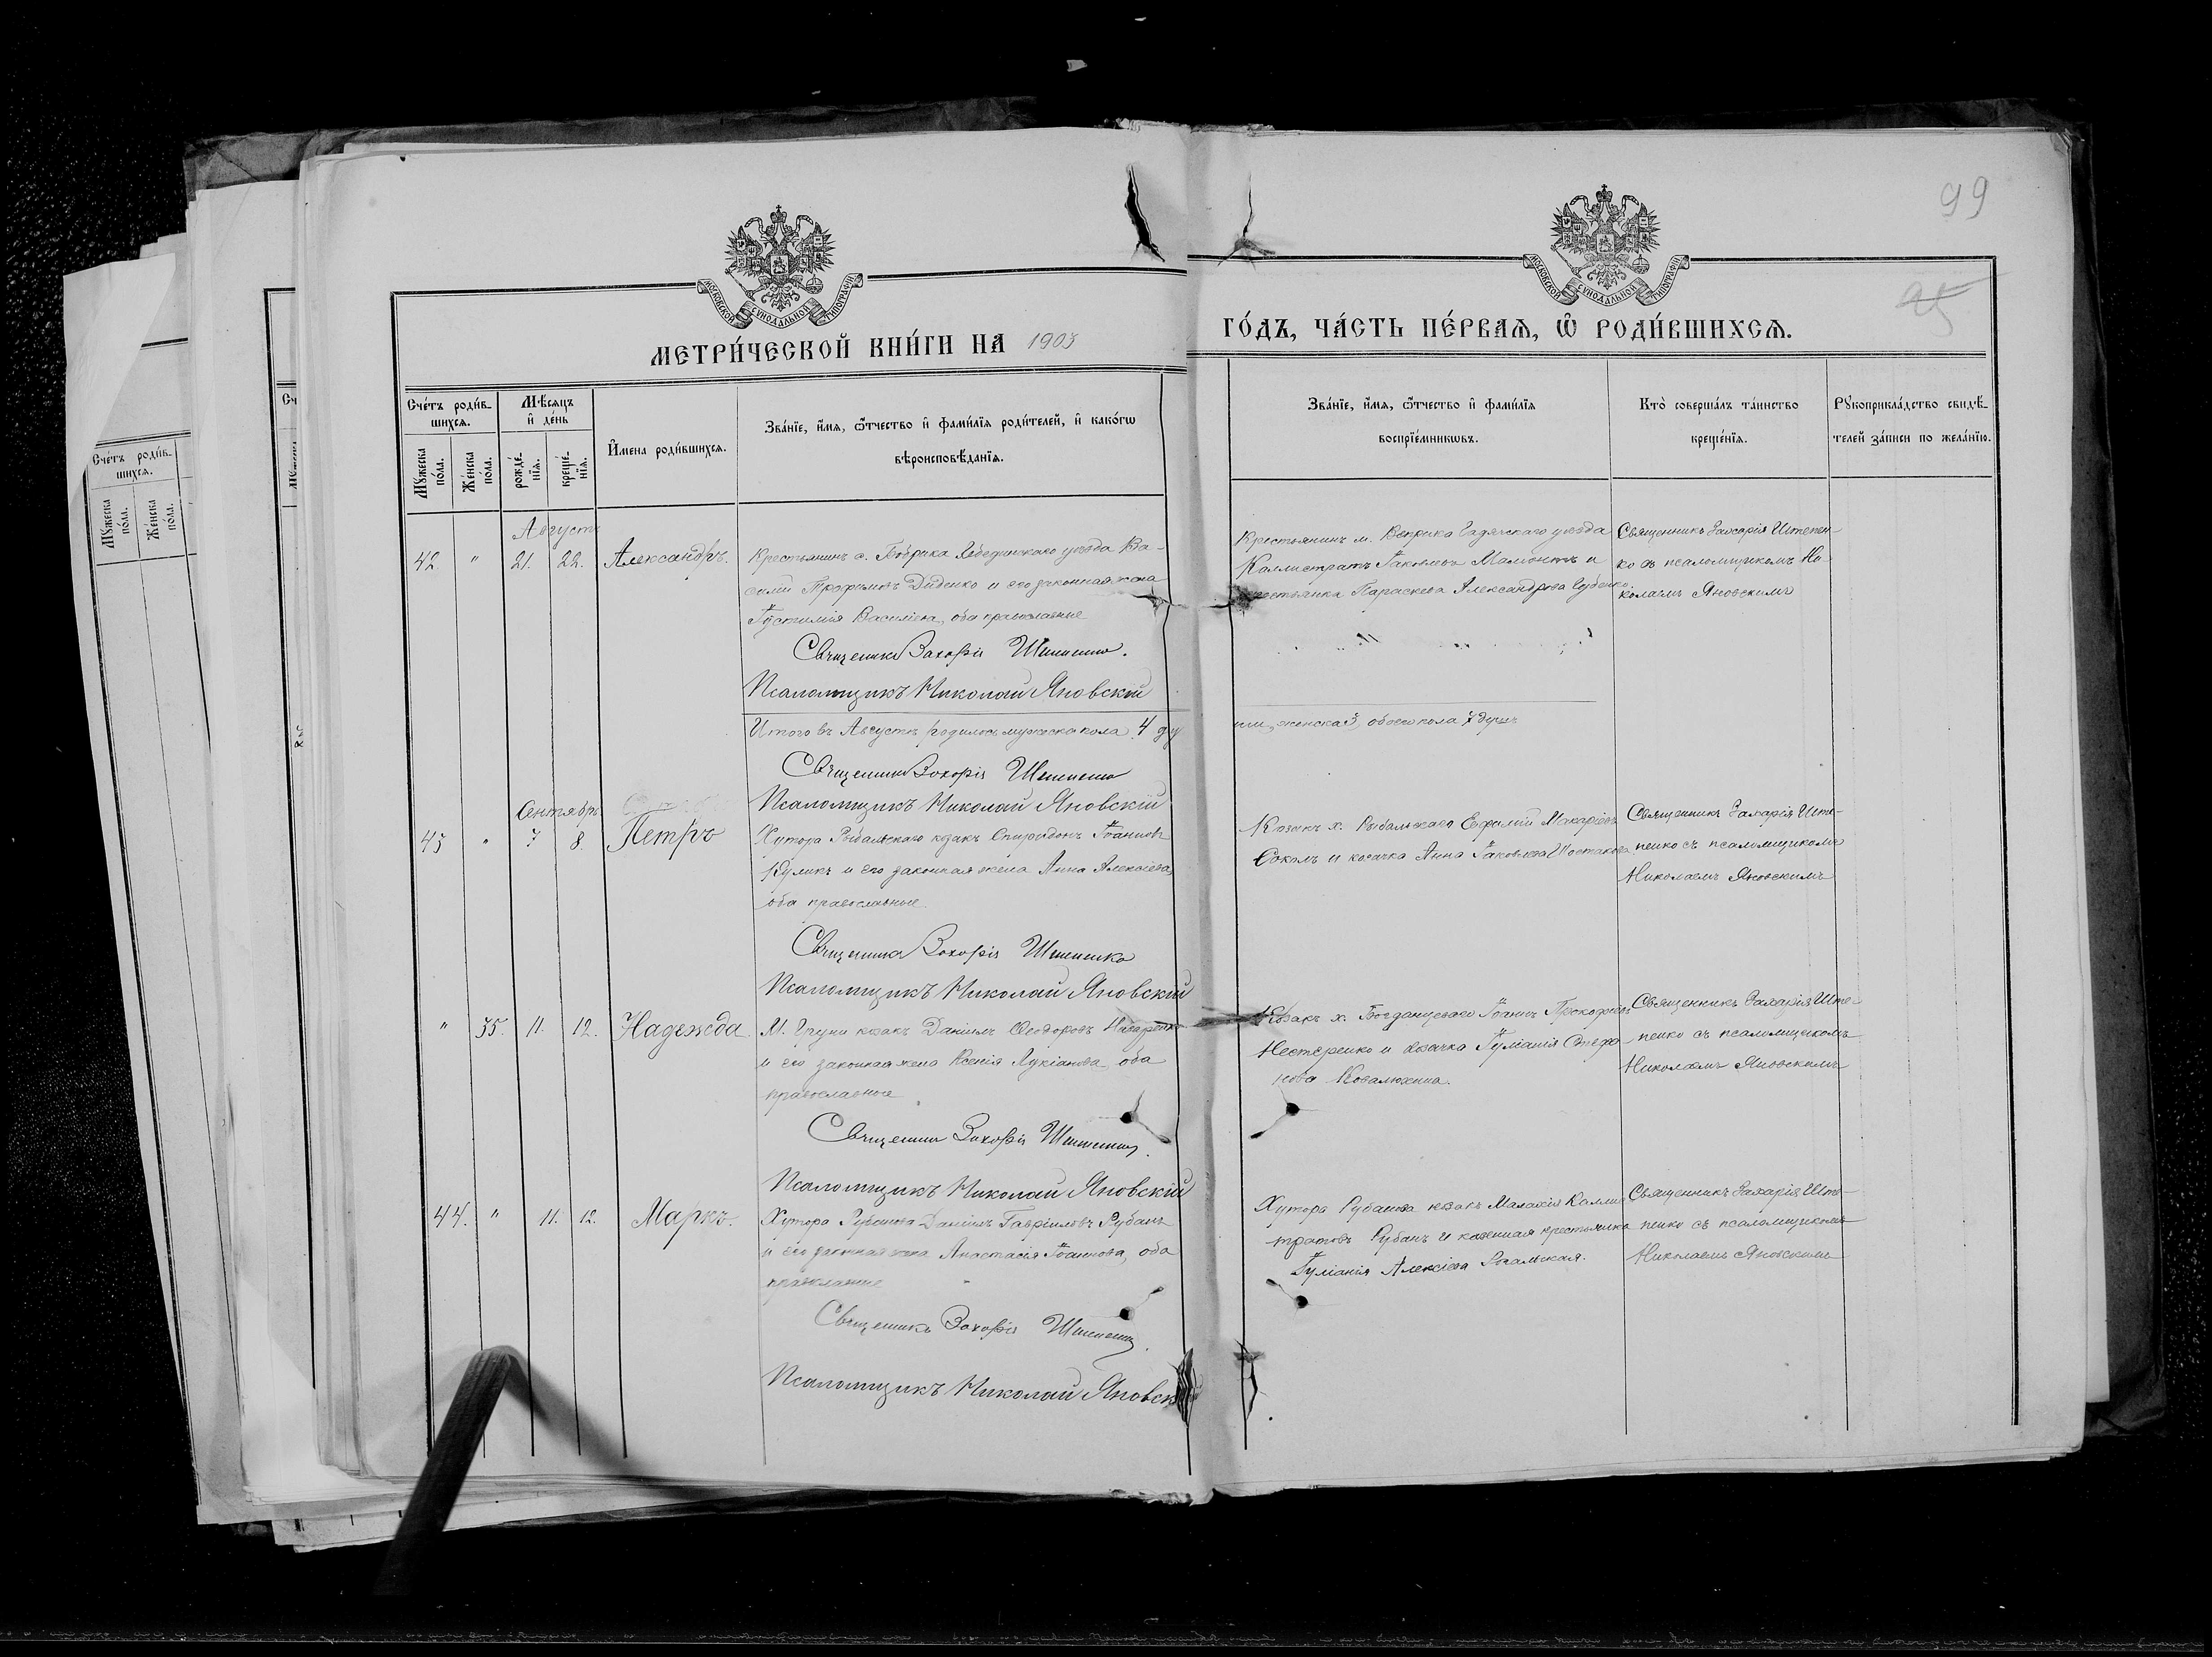 99
95
МОСКОВСКОЙ СѴНОДАЛЬНОЙ ТИПОГРАФІИ
МОСКОВСКОЙ СѴНОДАЛЬНОЙ ТИПОГРАФІИ
МЕТРИ́ЧЕСКОЙ КНИ́ГИ НА 1903
ГО́ДЪ, ЧА́СТЬ ПЕ́РВАѦ, Ѡ҆ РОДИ́ВШИХСѦ.
Сче́тъ роди́в-
шихсѧ.
Мꙋ́жеска по́ла.
Же́нска по́ла.
Мѣ́сѧцъ
и҆ де́нь
рожде́-
нїѧ.
креще́-
нїѧ.
И҆мена роди́вшихсѧ.
Зва́нїе, и҆́мѧ, ѻ҆́тчество и҆ фами́лїѧ роди́телей, и҆ како́гѡ
вѣроисповѣ́данїѧ.
Зва́нїе, и҆́мѧ, ѻ҆́тчество и҆ фами́лїѧ
воспрїе́мникѡвъ.
Кто̀ соверша́лъ та́инство
креще́нїѧ.
Рꙋкоприкла́дство свидѣ́-
телей за́писи по жела́нїю.
Августъ
42. " 21. 22. Александръ.
Крестьянинъ с. Бобрика Лебединскаго уѣзда Ва-
силій Трофимовъ Диденко и его законная жена
Василіева, оба православные
Священникъ Захарія Штепенко.
Псаломщикъ Николай Яновскій
Крестьянинъ м. Веприка Гадячскаго уѣзда
Каллистратъ Іаковлевъ Мамонтъ и
крестьянка Параскева Александрова
Священникъ Захарія Штепен-
ко съ псаломщикомъ Ни-
колаемъ Яновскимъ
Итого въ Августѣ родилось мужеска пола 4 ду
ши, женска 3, обоего пола 7 душъ
Священникъ Захарія Штепенко
Псаломщикъ Николай Яновскій
Сентябрь
43 " 7 8. Петръ
Хутора Рыбальскаго козакъ Спиридонъ Іоанновъ
Куликъ и его законная жена Анна Алексіева,
оба православные
Священникъ Захарія Штепенко
Псаломщикъ Николай Яновскій
Козакъ х. Рыбальскаго Евфимій Макаріевъ
Соколъ и козачка Анна Іаковлева Шостакова
Священникъ Захарія Ште-
пенко съ псаломщикомъ
Николаемъ Яновскимъ
" 35. 11. 12. Надежда
М. Груни козакъ Даніилъ Ѳеодоровъ Назаренко
и его законная жена Ксенія Лукіанова, оба
православные
Священникъ Захарія Штепенко
Псаломщикъ Николай Яновскій
Козакъ х. Богдановскаго Іоаннъ Прокофіевъ
Нестеренко и козачка Іуліанія Стефа-
нова Ковалюхина.
Священникъ Захарія Ште-
пенко съ псаломщикомъ
Николаемъ Яновскимъ
44. " 11. 12. Маркъ.
Хутора Рубанова Даніилъ Гавріиловъ Рубанъ
и его законная жена Анастасія Іоаннова, оба
православные
Священникъ Захарія Штепенко
Псаломщикъ Николай Яновскій
Хутора Рубанова козакъ Малахія Каллис
тратовъ Рубанъ и казенная крестьянка
Іуліанія Алексіева
Священникъ Захарія Ште-
пенко съ псаломщикомъ
Николаемъ Яновскимъ
Сче́тъ роди́в-
шихсѧ.
Мꙋ́жеска по́ла.
Же́нска по́ла.